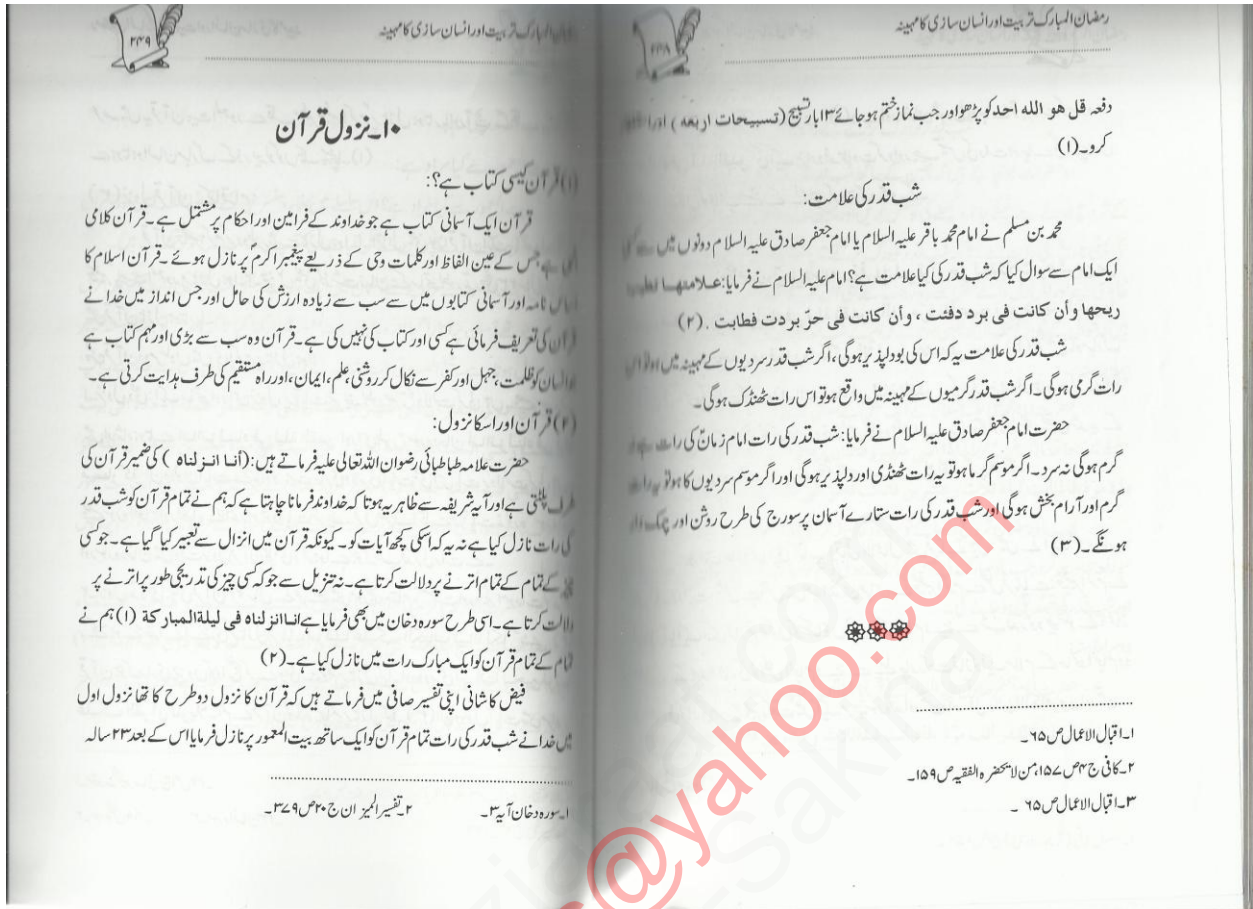 رمضان المبارک تربیت اور انسان سازی کا مہینہ
۲۴۸
دفعہ قل هو الله احد کو پڑھو اور جب نماز ختم ہو جائے ۱۳ بار تسبیح (تسبیحات اربعه) اور
کرو۔(۱)
شب قدر کی علامت:
محمد بن مسلم نے امام محمد باقر علیہ السلام یا امام جعفر صادق علیہ السلام دونوں میں سے کسی
ایک امام سے سوال کیا کہ شب قدر کی کیا علامت ہے؟ امام علیہ السلام نے فرمایا: علامتها
ریحها وأن کانت فی برد دفئت ، وأن کانت فی حرّ بردت فطابت .(۲)
شب قدر کی علامت یہ کہ اس کی بو دلپذیر ہوگی، اگر شب قدر سردیوں کے مہینہ میں ہو تو اس
رات گرمی ہوگی۔ اگر شب قدر گرمیوں کے مہینہ میں واقع ہو تو اس رات ٹھنڈک ہوگی۔
حضرت امام جعفر صادق علیہ السلام نے فرمایا: شب قدر کی رات امام زمانؑ کی رات ہے
گرم ہوگی نہ سرد۔ اگر موسم گرما ہو تو یہ رات ٹھنڈی اور دلپذیر ہوگی اور اگر موسم سردیوں کا ہو تو یہ رات
گرم اور آرام بخش ہوگی اور شب قدر کی رات ستارے آسمان پر سورج کی طرح روشن اور چمک
ہونگے۔(۳)
۱۔ اقبال الاعمال ص ۶۵۔
۲۔ کافی ج ۴ ص ۱۵۷، من لا یحضرہ الفقیہ ص ۱۵۹۔
۳۔ اقبال الاعمال ص ۶۵ ۔
المبارک تربیت اور انسان سازی کا مہینہ
۲۴۹
۱۰۔ نزول قرآن
(۱) قرآن کیسی کتاب ہے؟:
قرآن ایک آسمانی کتاب ہے جو خداوند کے فرامین اور احکام پر مشتمل ہے۔ قرآن کلامی
ہے جس کے عین الفاظ اور کلمات وحی کے ذریعے پیغمبر اکرمؐ پر نازل ہوئے۔ قرآن اسلام کا
نامہ اور آسمانی کتابوں میں سے سب سے زیادہ ارزش کی حامل اور جس انداز میں خدا نے
قرآن کی تعریف فرمائی ہے کسی اور کتاب کی نہیں کی ہے۔ قرآن وہ سب سے بڑی اور مہم کتاب ہے
انسان کو ظلمت، جہل اور کفر سے نکال کر روشنی، علم، ایمان، اور راہ مستقیم کی طرف ہدایت کرتی ہے۔
(۲) قرآن اور اسکا نزول:
حضرت علامہ طباطبائی رضوان اللہ تعالی علیہ فرماتے ہیں: (أنا انزلناه ) کی ضمیر قرآن کی
طرف پلٹتی ہے اور آیہ شریفہ سے ظاہر یہ ہوتا کہ خداوند فرمانا چاہتا ہے کہ ہم نے تمام قرآن کو شب قدر
کی رات نازل کیا ہے نہ یہ کہ اسکی کچھ آیات کو۔ کیونکہ قرآن میں انزال سے تعبیر کیا گیا ہے۔ جو کسی
چیز کے تمام کے تمام اترنے پر دلالت کرتا ہے۔ نہ تنزیل سے جو کہ کسی چیز کی تدریجی طور پر اترنے پر
دلالت کرتا ہے۔ اسی طرح سورہ دخان میں بھی فرمایا ہے انا انزلناه فی لیلة المبارکة (۱) ہم نے
تمام کے تمام قرآن کو ایک مبارک رات میں نازل کیا ہے۔(۲)
فیض کاشانی اپنی تفسیر صافی میں فرماتے ہیں کہ قرآن کا نزول دو طرح کا تھا نزول اول
میں خدا نے شب قدر کی رات تمام قرآن کو ایک ساتھ بیت المعمور پر نازل فرمایا اس کے بعد ۲۳ سالہ
۱۔ سورہ دخان آیہ ۳۔ ۲۔ تفسیر المیزان ج ۲۰ ص ۳۷۹۔
@yahoo.com